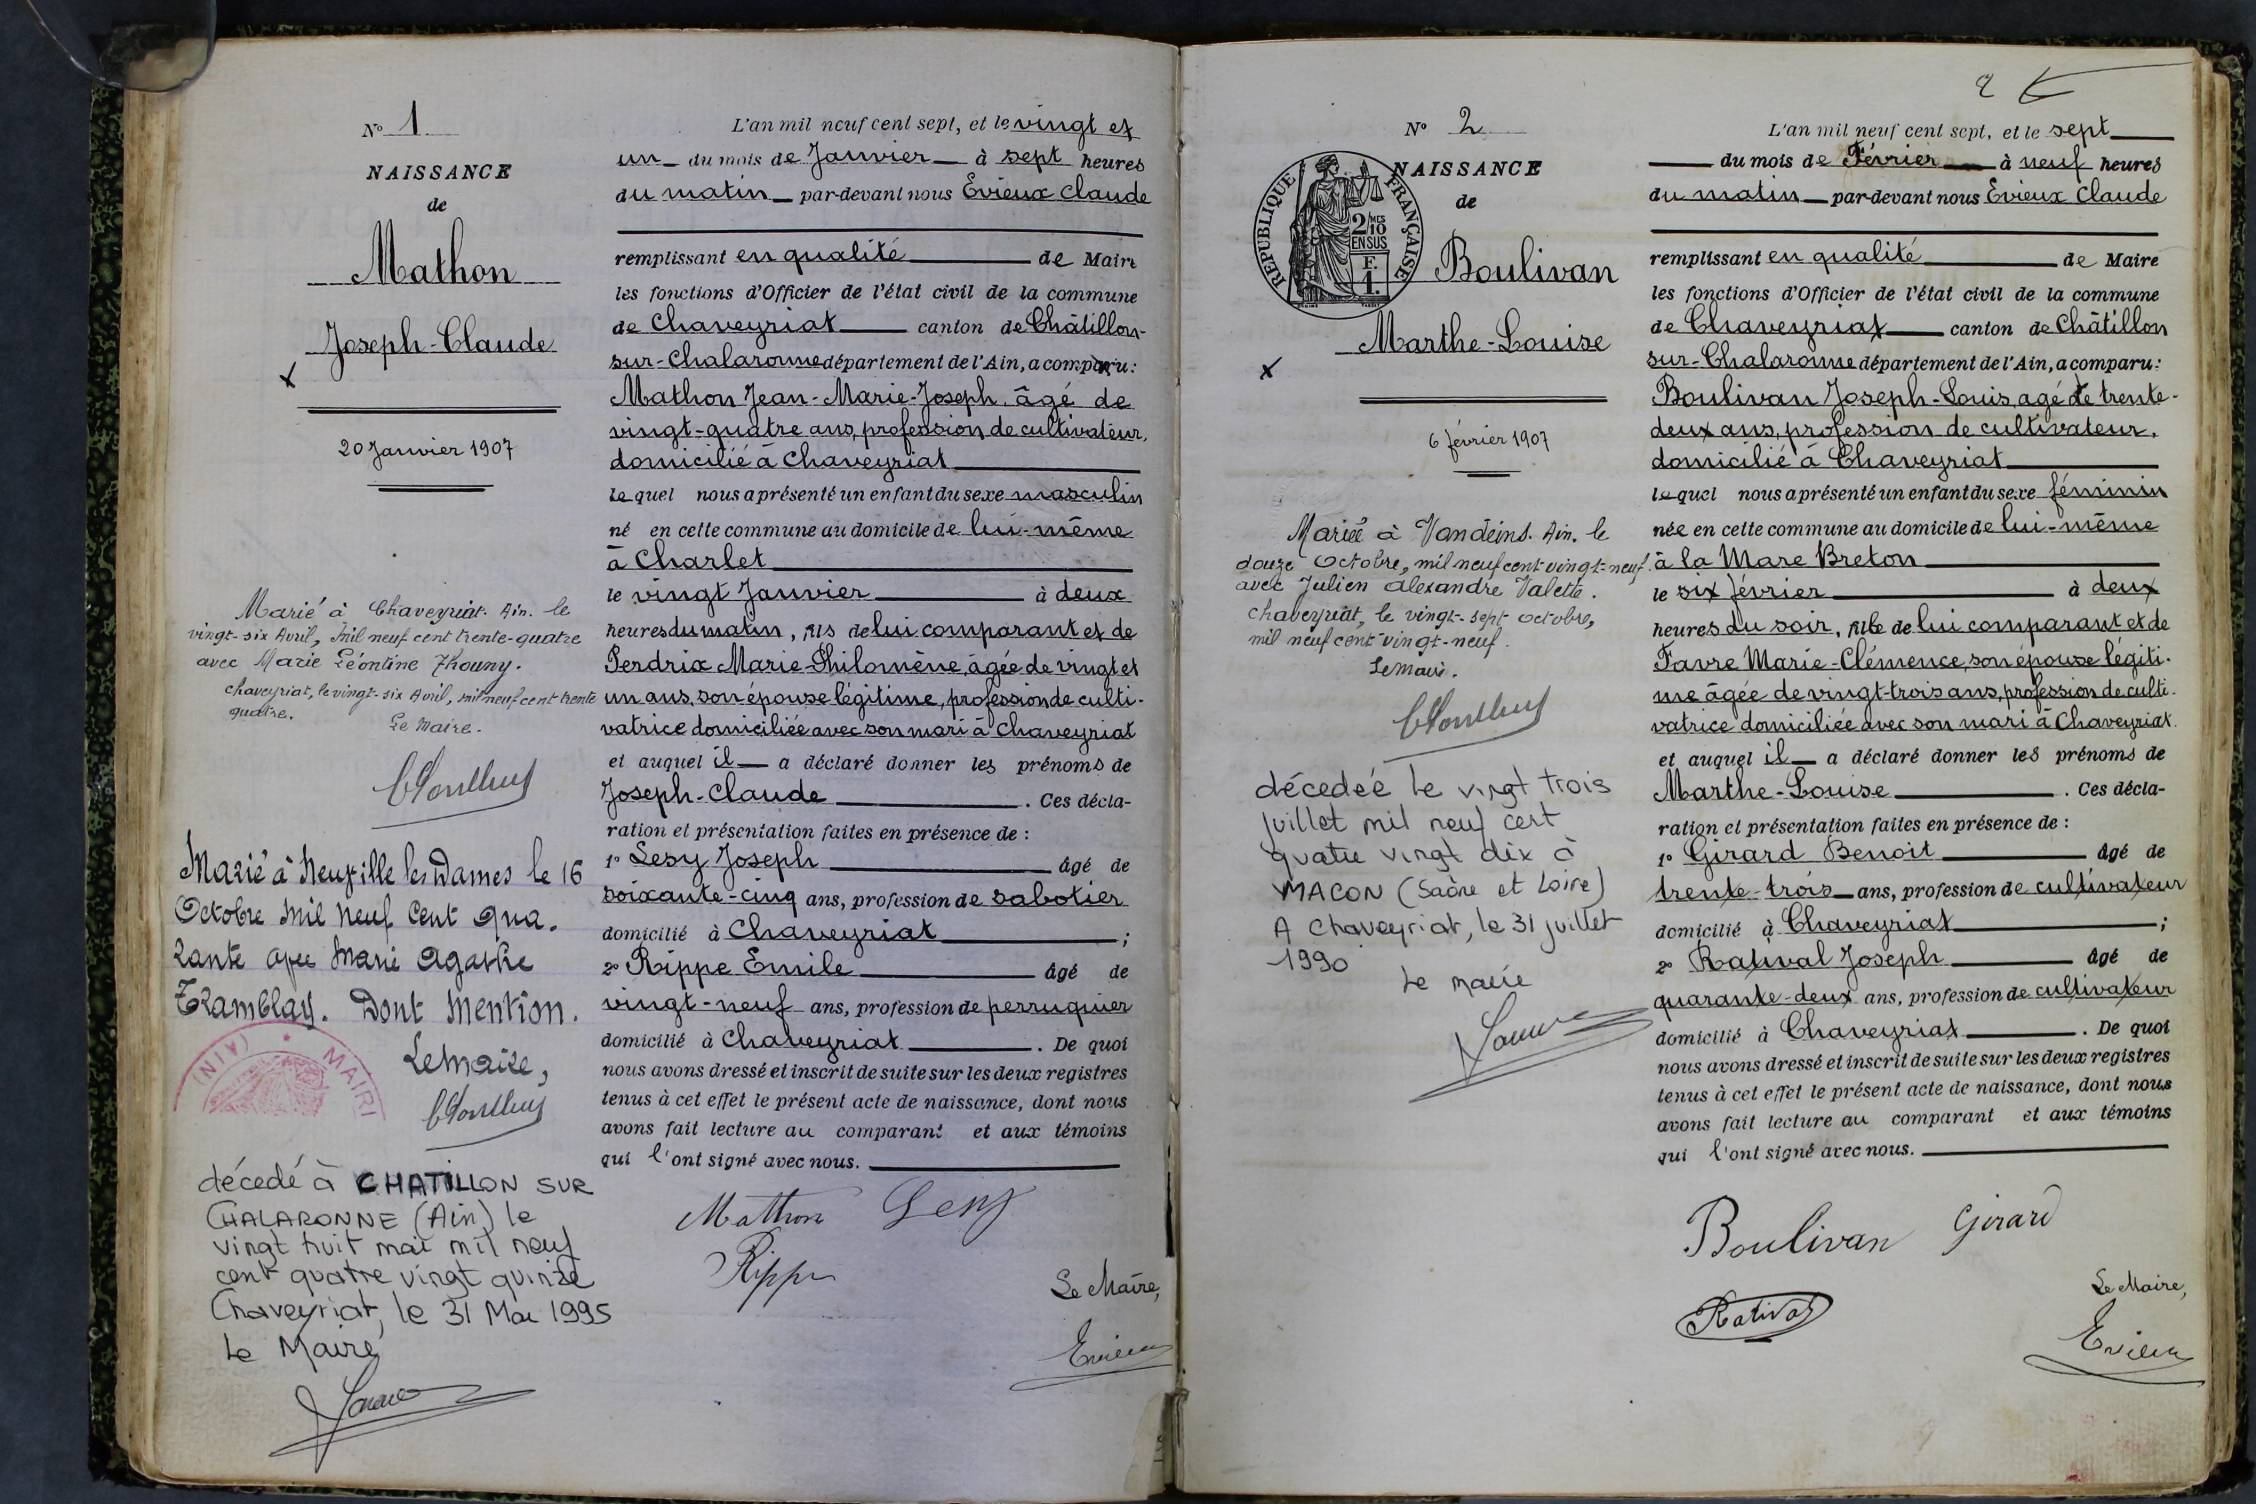 Nº 1
NAISSANCE
de
Mathon
Joseph-Claude
20 Janvier 1907
Marié à Chaveyriat. Ain. le
vingt-six Avril, mil neuf cent trente-quatre
avec Marie Léontine Thouny.
chaveyriat, le vingt-six Avril, mil neuf cent trente
quatre.
Le Maire.
Marié à Neuville les Dames le 16
Octobre mil neuf cent qua-
rante avec Marie Agathe
Tramblay. Dont Mention.
(AIN) * MAIRI
Le Maire,
décedé à CHATILLON SUR
CHALARONNE (Ain) le
vingt huit mai mil neuf
cent quatre vingt quinze
Chaveyriat, le 31 Mai 1995
Le Maire
L'an mil neuf cent sept, et le vingt et
un du mois de Janvier à sept heures
du matin par-devant nous Evieux Claude
remplissant en qualité de Maire
les fonctions d'Officier de l'état civil de la commune
de Chaveyriat canton de Châtillon-
sur-Chalaronne département de l'Ain, a comparu:
Mathon Jean-Marie-Joseph, âgé de
vingt-quatre ans, profession de cultivateur,
domicilié à Chaveyriat
lequel nous a présenté un enfant du sexe masculin
né en cette commune au domicile de lui-même
à Charlet
le vingt Janvier à deux
heures du matin, fils de lui comparant et de
Perdrix Marie-Philomène, âgée de vingt et
un ans, son épouse légitime, profession de culti-
vatrice domiciliée avec son mari à Chaveyriat
et auquel il a déclaré donner les prénoms de
Joseph-Claude . Ces décla-
ration et présentation faites en présence de :
1º Lesy Joseph âgé de
soixante-cinq ans, profession de sabotier
domicilié à Chaveyriat ;
2º Rippe Emile âgé de
vingt-neuf ans, profession de perruquier
domicilié à Chaveyriat . De quoi
nous avons dressé et inscrit de suite sur les deux registres
tenus à cet effet le présent acte de naissance, dont nous
avons fait lecture au comparant et aux témoins
qui l'ont signé avec nous.
Mathon Lesy
Rippe
Le Maire,
Evieux
2
Nº 2
NAISSANCE
de
REPUBLIQUE FRANÇAISE
2/10MES
EN SUS
F.
1.
Boulivan
Marthe-Louise
6 février 1907
Mariée à Vandeins. Ain. le
douze Octobre, mil neuf cent vingt-neuf.
avec Julien Alexandre Valette.
chaveyriat, le vingt-sept octobre,
mil neuf cent vingt-neuf.
Le Maire.
décedeé le vingt trois
juillet mil neuf cent
quatre vingt dix à
MACON (Saône et Loire)
A Chaveyriat, le 31 juillet
1990
Le maire
L'an mil neuf cent sept, et le sept
du mois de Février à neuf heures
du matin par-devant nous Evieux Claude
remplissant en qualité de Maire
les fonctions d'Officier de l'état civil de la commune
de Chaveyriat canton de Châtillon
sur-Chalaronne département de l'Ain, a comparu:
Boulivan Joseph-Louis, agé de trente-
deux ans, profession de cultivateur,
domicilié à Chaveyriat
lequel nous a présenté un enfant du sexe féminin
née en cette commune au domicile de lui-même
à la Mare Breton
le six février à deux
heures du soir, fille de lui comparant et de
Favre Marie-Clémence, son épouse légiti-
me âgée de vingt-trois ans, profession de culti-
vatrice domiciliée avec son mari à Chaveyriat.
et auquel il a déclaré donner les prénoms de
Marthe-Louise . Ces décla-
ration et présentation faites en présence de :
1º Girard Benoit âgé de
trente-trois ans, profession de cultivateur
domicilié à Chaveyriat ;
2º Ratival Joseph âgé de
quarante-deux ans, profession de cultivateur
domicilié à Chaveyriat . De quoi
nous avons dressé et inscrit de suite sur les deux registres
tenus à cet effet le présent acte de naissance, dont nous
avons fait lecture au comparant et aux témoins
qui l'ont signé avec nous.
Boulivan Girard
Ratival
Le Maire,
Evieux